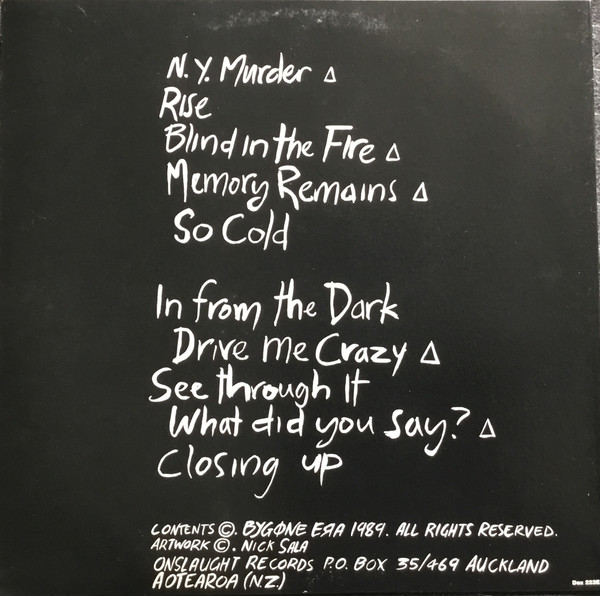 N.Y. Murder △
Rise
Blind in the Fire △
Memory Remains △
So Cold
In from the Dark
Drive me Crazy △
See through It
What did you say? △
Closing up
CONTENTS ©. BYGΦNE EЯA 1989. ALL RIGHTS RESERVED.
ARTWORK ©. NICK SALA
ONSLAUGHT RECORDS P.O. BOX 35/469 AUCKLAND
AOTEAROA (N.Z.)